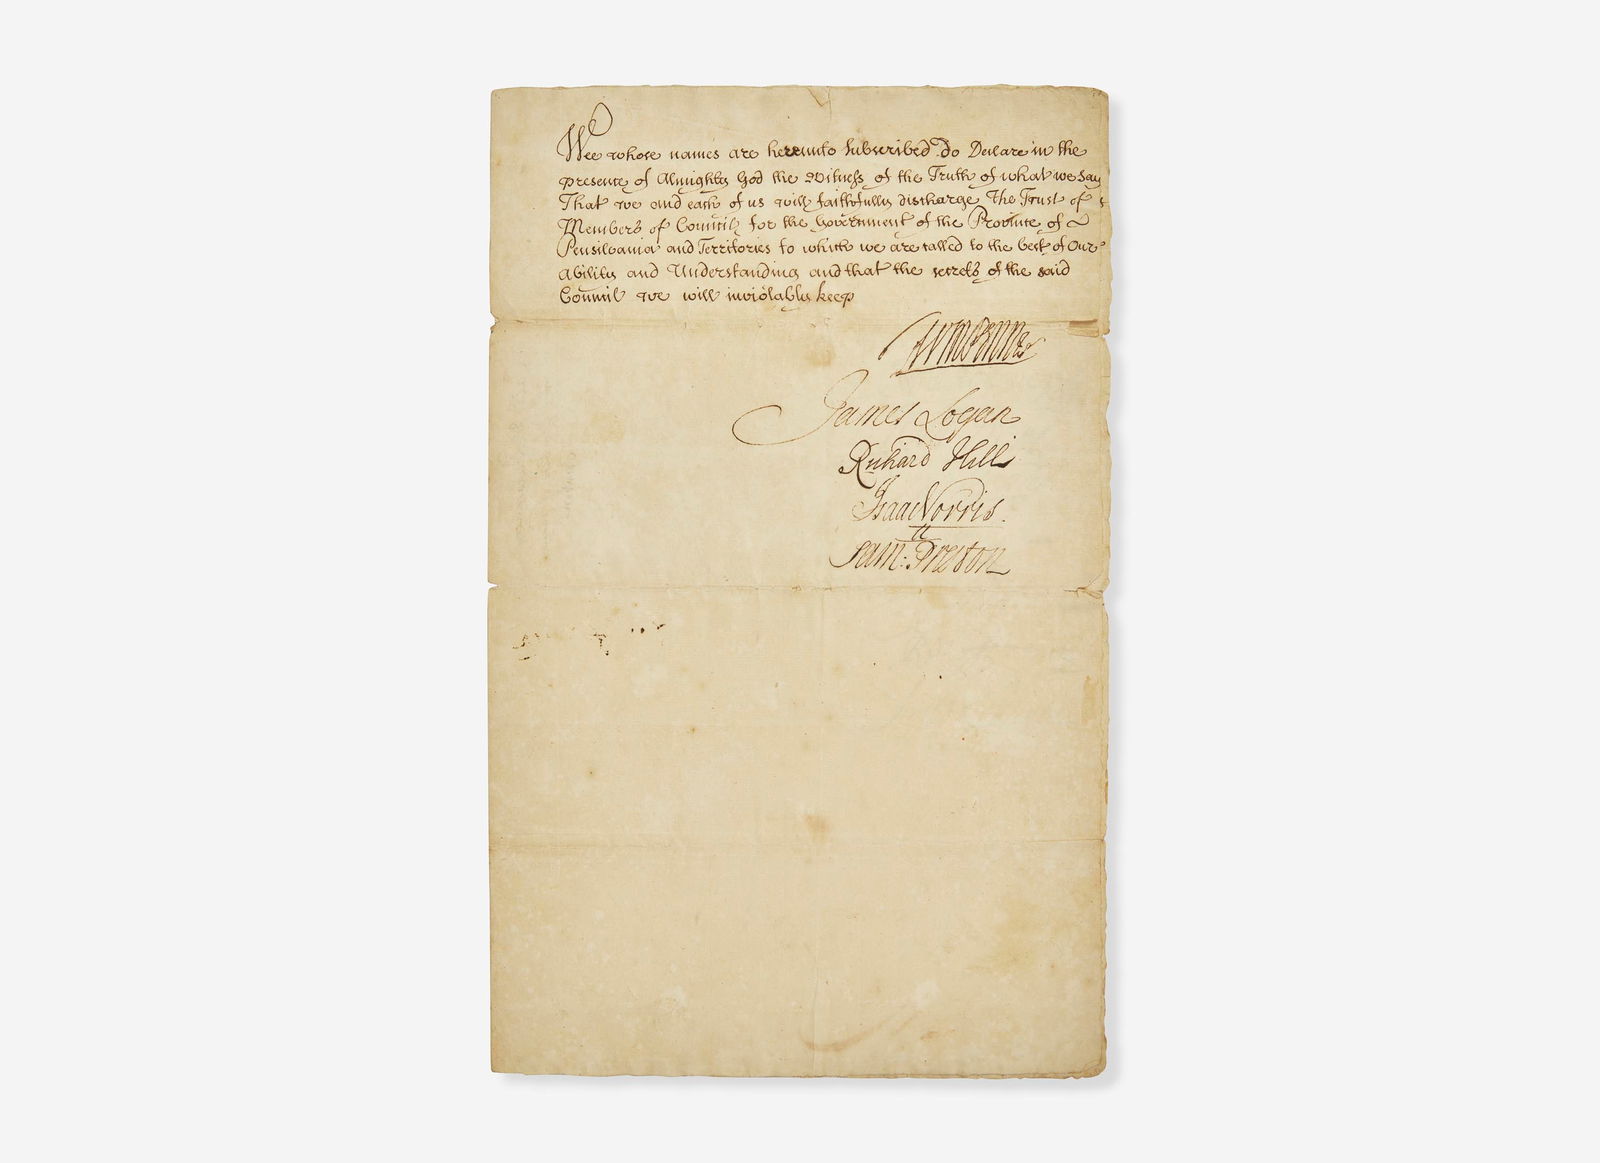 Wee whose names are hereunto Subscribed do Declare in the
presence of Almighty God the Witness of the Truth of what we Say
That we and each of us will faithfully discharge the Trust of
Members of Councill for the Government of the Province of
Pensilvania and Territories to which we are called to the best of Our
Ability and Understanding and that the secrets of the said
Councill we will inviolably keep
Wm Penn
James Logan
Richard Hill
Isaac Norris
Sam: Preston